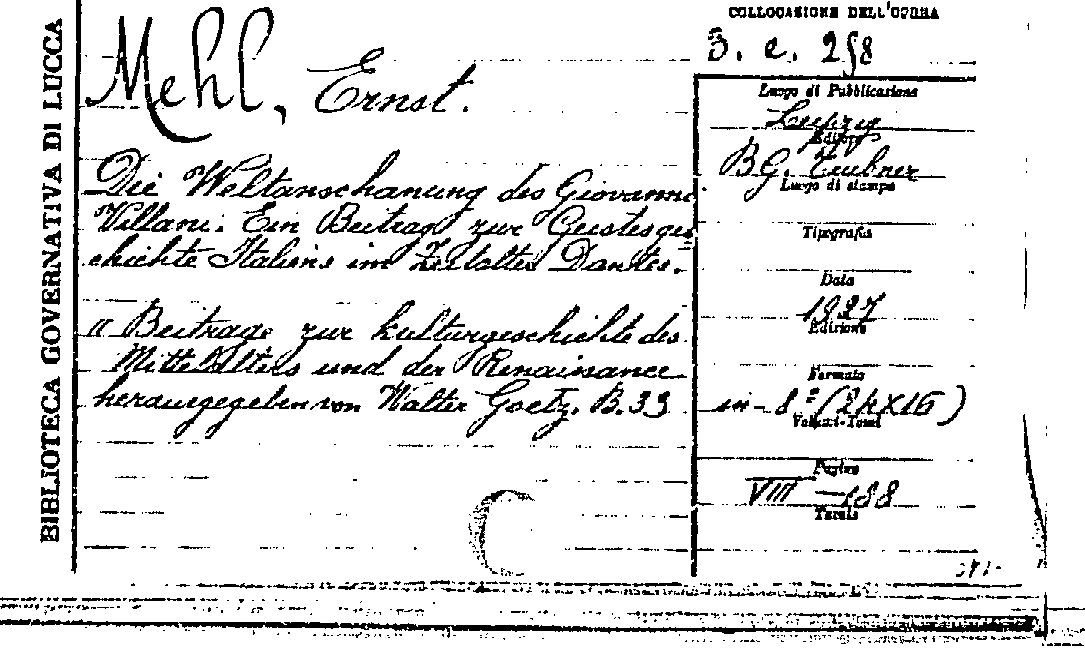 BIBLIOTECA GOVERNATIVA DI LUCCA
COLLOCAZIONE DELL'OPERA
3. e. 258
Mehl, Ernst.
Die Weltanschanung des Giovanni
Villani. Ein Beitrag zur Geistesges
chichte Italiens im Zeitalter Dantes.
" Beitrage zur Kulturgeschichte des
Mittelalters und der Renaissance
herausgegeben von Walter Goetz. B. 33
Luogo di Pubblicazione
Leipzig
Editore
B.G. Teubner
Luogo di stampa
Tipografia
Data
1927
Edizione
Formato
in-8º (24X16)
Volumi-Tomi
Pagine
VIII-188
Tavole